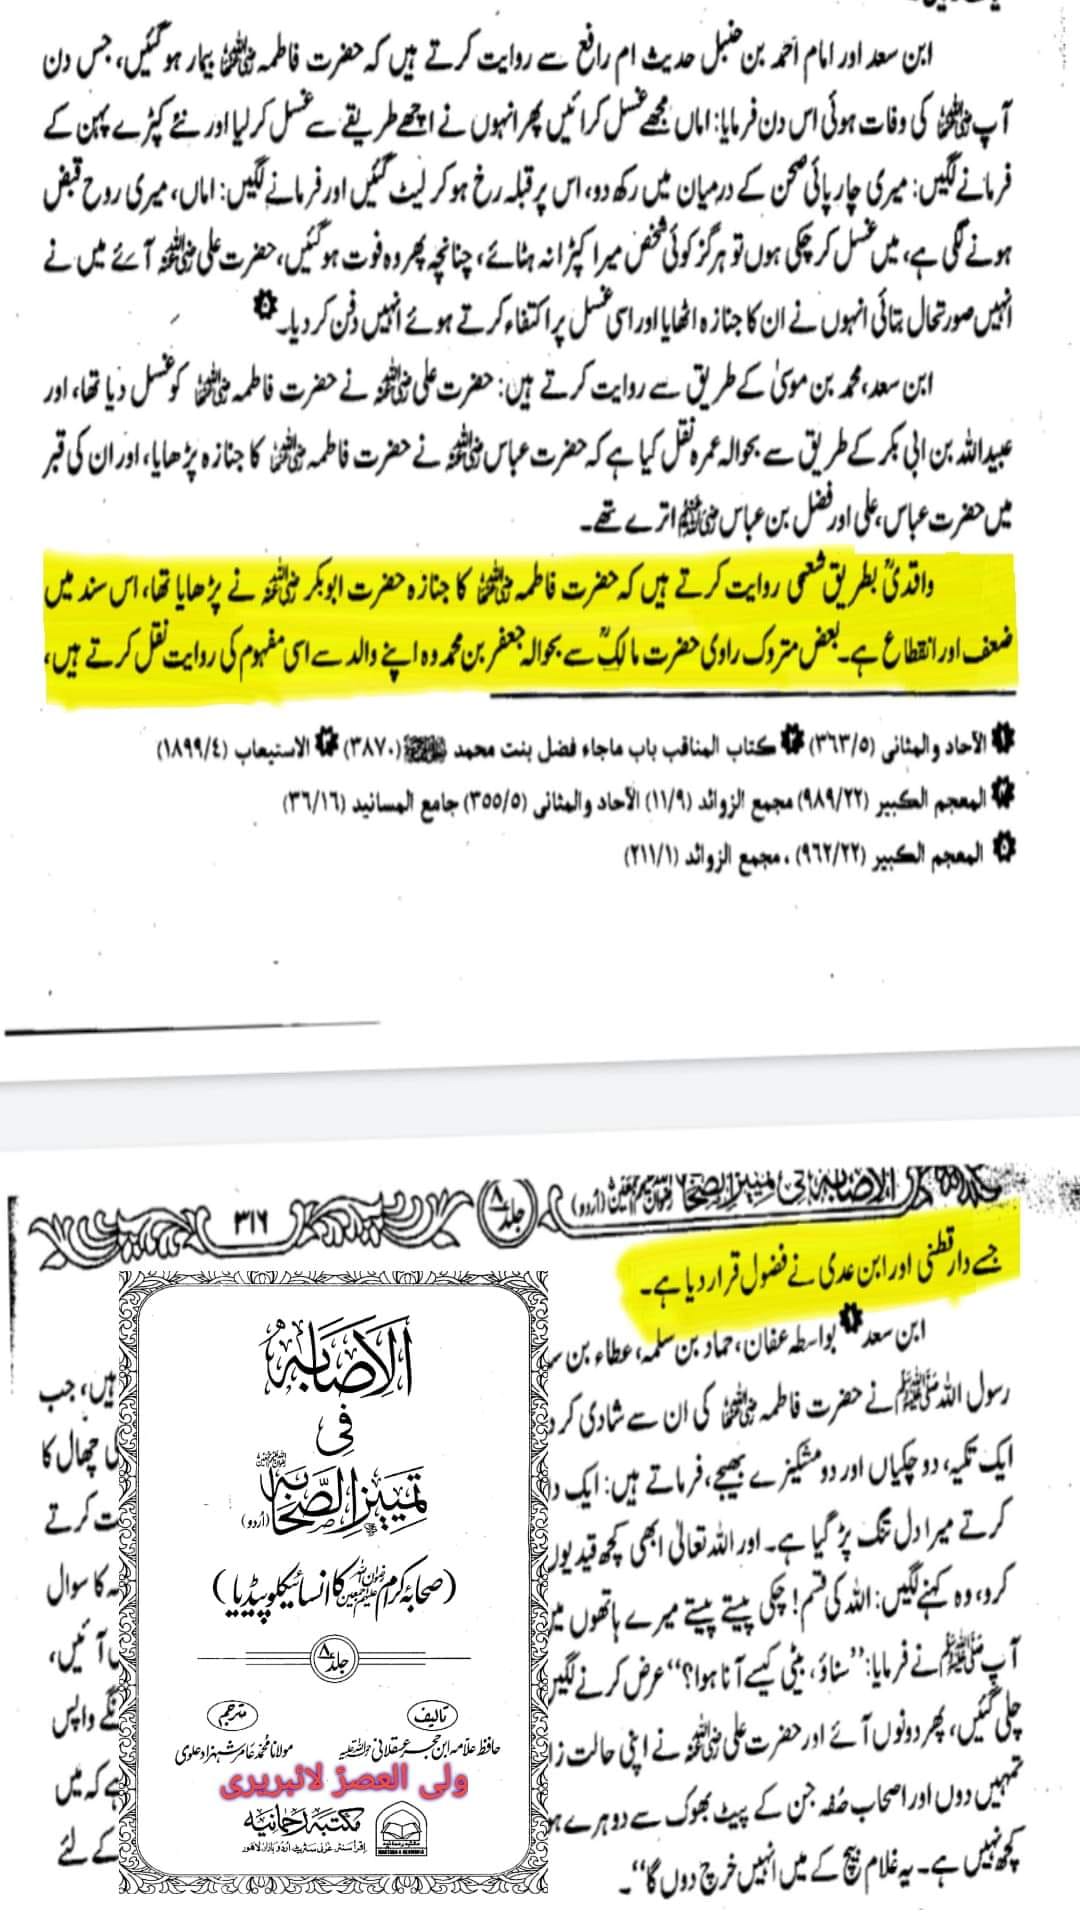 ابن سعد اور امام احمد بن حنبل حدیث ام رافع سے روایت کرتے ہیں کہ حضرت فاطمہ رضی اللہ عنہا بیمار ہوگئیں، جس دن
آپ رضی اللہ عنہا کی وفات ہوئی اس دن فرمایا: اماں مجھے غسل کرائیں پھر انہوں نے اچھے طریقے سے غسل کر لیا اور نئے کپڑے پہن کے
فرمانے لگیں: میری چارپائی صحن کے درمیان میں رکھ دو، اس پر قبلہ رخ ہو کر لیٹ گئیں اور فرمانے لگیں: اماں، میری روح قبض
ہونے لگی ہے، میں غسل کر چکی ہوں تو ہرگز کوئی شخص میرا کپڑا نہ ہٹائے، چنانچہ پھر وہ فوت ہوگئیں، حضرت علی رضی اللہ عنہ آئے میں نے
انہیں صورتحال بتائی انہوں نے ان کا جنازہ اٹھایا اور اسی غسل پر اکتفاء کرتے ہوئے انہیں دفن کر دیا۔ ۵
ابن سعد، محمد بن موسیٰ کے طریق سے روایت کرتے ہیں: حضرت علی رضی اللہ عنہ نے حضرت فاطمہ رضی اللہ عنہا کو غسل دیا تھا، اور
عبید اللہ بن ابی بکر کے طریق سے بحوالہ عمرہ نقل کیا ہے کہ حضرت عباس رضی اللہ عنہ نے حضرت فاطمہ رضی اللہ عنہا کا جنازہ پڑھایا، اور ان کی قبر
میں حضرت عباس، علی اور فضل بن عباس رضی اللہ عنہم اترے تھے۔
واقدیؒ بطریق شعبی روایت کرتے ہیں کہ حضرت فاطمہ رضی اللہ عنہا کا جنازہ حضرت ابوبکر رضی اللہ عنہ نے پڑھایا تھا، اس سند میں
ضعف اور انقطاع ہے۔ بعض متروک راوی حضرت مالکؒ سے بحوالہ جعفر بن محمد وہ اپنے والد سے اسی مفہوم کی روایت نقل کرتے ہیں،
۱ الآحاد والمثانی (۳۶۳/۵) ۲ کتاب المناقب باب ماجاء فضل بنت محمد ﷺ (۳۸۷۰) ۳ الاستیعاب (۱۸۹۹/٤)
المعجم الکبیر (۹۸۹/۲۲) مجمع الزوائد (۱۱/۹) الآحاد والمثانی (۳۵۵/۵) جامع المسانید (۳۶/۱۶)
۵ المعجم الکبیر (۹۶۲/۲۲)، مجمع الزوائد (۲۱۱/۱)
الاصابہ فی تمییز الصحابہ (اردو) جلد ۸ ۳۱۶
جسے دارقطنی اور ابن عدی نے فضول قرار دیا ہے۔
ابن سعد ۱ بواسطہ عفان، حماد بن سلمہ، عطاء بن
رسول اللہ ﷺ نے حضرت فاطمہ رضی اللہ عنہا کی ان سے شادی کر
ہیں، جب
ایک تکیہ، دو چکیاں اور دو مشکیزے بھیجے، فرماتے ہیں: ایک
چھال کا
کرتے میرا دل تنگ پڑ گیا ہے۔ اور اللہ تعالیٰ ابھی کچھ قیدیوں
کرتے
کرو، وہ کہنے لگیں: اللہ کی قسم! چکی پیستے پیستے میرے ہاتھوں
کا سوال
آپ ﷺ نے فرمایا: ”سناؤ، بیٹی کیسے آنا ہوا؟“ عرض کرنے لگیں
آئیں،
چلی گئیں، پھر دونوں آئے اور حضرت علی رضی اللہ عنہ نے اپنی حالت
واپس
تمہیں دوں اور اصحاب صفہ جن کے پیٹ بھوک سے دوہرے
ہے کہ میں
کچھ نہیں ہے۔ یہ غلام بیچ کے میں انہیں خرچ دوں گا“۔
کے لئے
الاصابہ
فی
تمییز الصحابہ (اردو)
(صحابہ کرام رضوان اللہ علیہم اجمعین کا انسائیکلوپیڈیا)
جلد ۸
تالیف
حافظ علامہ ابن حجر عسقلانی رحمۃ اللہ علیہ
مترجم
مولانا محمد عامر شہزاد علوی
ولی العصرؑ لائبریری
مکتبہ رحمانیہ
اقرا سنٹر غزنی سٹریٹ اردو بازار لاہور